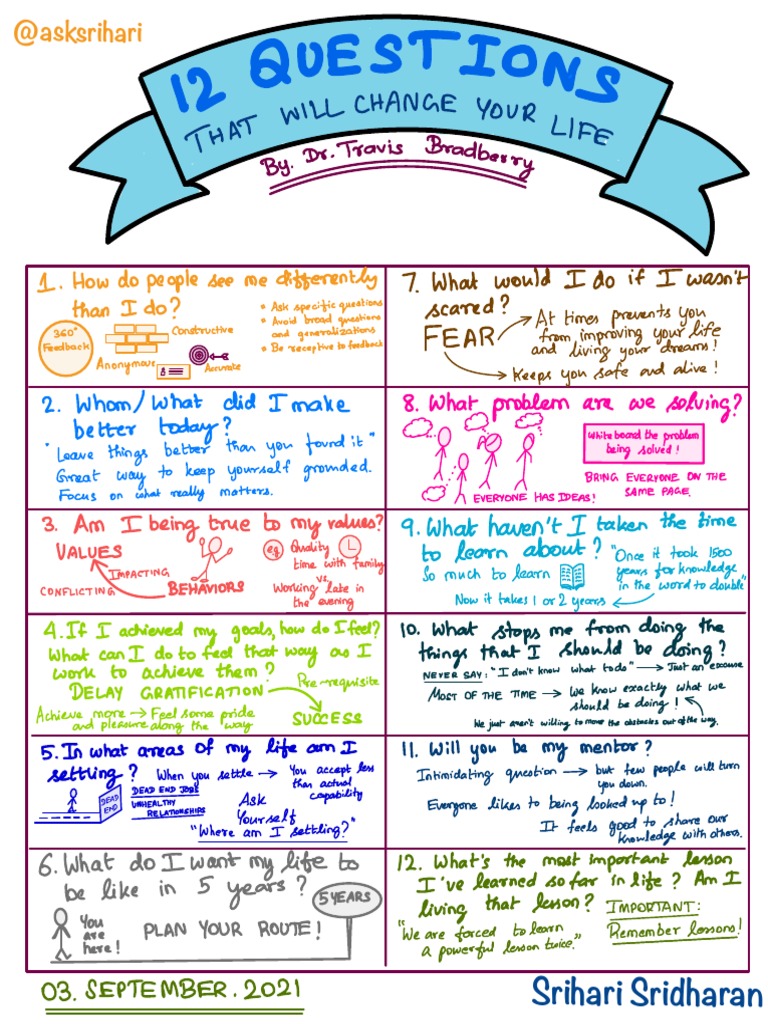 @asksrihari
12 QUESTIONS
THAT WILL CHANGE YOUR LIFE
By. Dr. Travis Bradberry
1. How do people see me differently
than I do?
360°
Feedback
Constructive
Anonymous
Accurate
• Ask specific questions
• Avoid broad questions
and generalizations
• Be receptive to feedback
2. Whom/What did I make
better today?
"Leave things better than you found it"
Great way to keep yourself grounded.
Focus on what really matters.
3. Am I being true to my values?
VALUES
IMPACTING
CONFLICTING
BEHAVIORS
eg Quality
time with family
vs.
Working late in
the evening
4. If I achieved my goals, how do I feel?
What can I do to feel that way as I
work to achieve them?
DELAY GRATIFICATION
Pre-requisite
SUCCESS
Achieve more → Feel some pride
and pleasure along the way
5. In what areas of my life am I
settling?
When you settle → You accept less
than actual
capability
DEAD END
DEAD END JOBS
UNHEALTHY
RELATIONSHIPS
Ask
Yourself
"Where am I settling?"
6. What do I want my life to
be like in 5 years?
5 YEARS
You
are
here!
PLAN YOUR ROUTE!
7. What would I do if I wasn't
scared?
FEAR
At times prevents you
from improving your life
and living your dreams!
Keeps you safe and alive!
8. What problem are we solving?
Whiteboard the problem
being solved!
BRING EVERYONE ON THE
SAME PAGE.
EVERYONE HAS IDEAS!
9. What haven't I taken the time
to learn about?
So much to learn
"Once it took 1500
years for knowledge
in the word to double"
Now it takes 1 or 2 years
10. What stops me from doing the
things that I should be doing?
NEVER SAY: "I don't know what to do" → Just an excuse
MOST OF THE TIME → We know exactly what we
should be doing!
We just aren't willing to move the obstacles out of the way.
11. Will you be my mentor?
Intimidating question → but few people will turn
you down.
Everyone likes to being looked up to!
It feels good to share our
knowledge with others.
12. What's the most important lesson
I've learned so far in life? Am I
living that lesson?
IMPORTANT:
Remember lessons!
"We are forced to learn
a powerful lesson twice."
03. SEPTEMBER. 2021
Srihari Sridharan